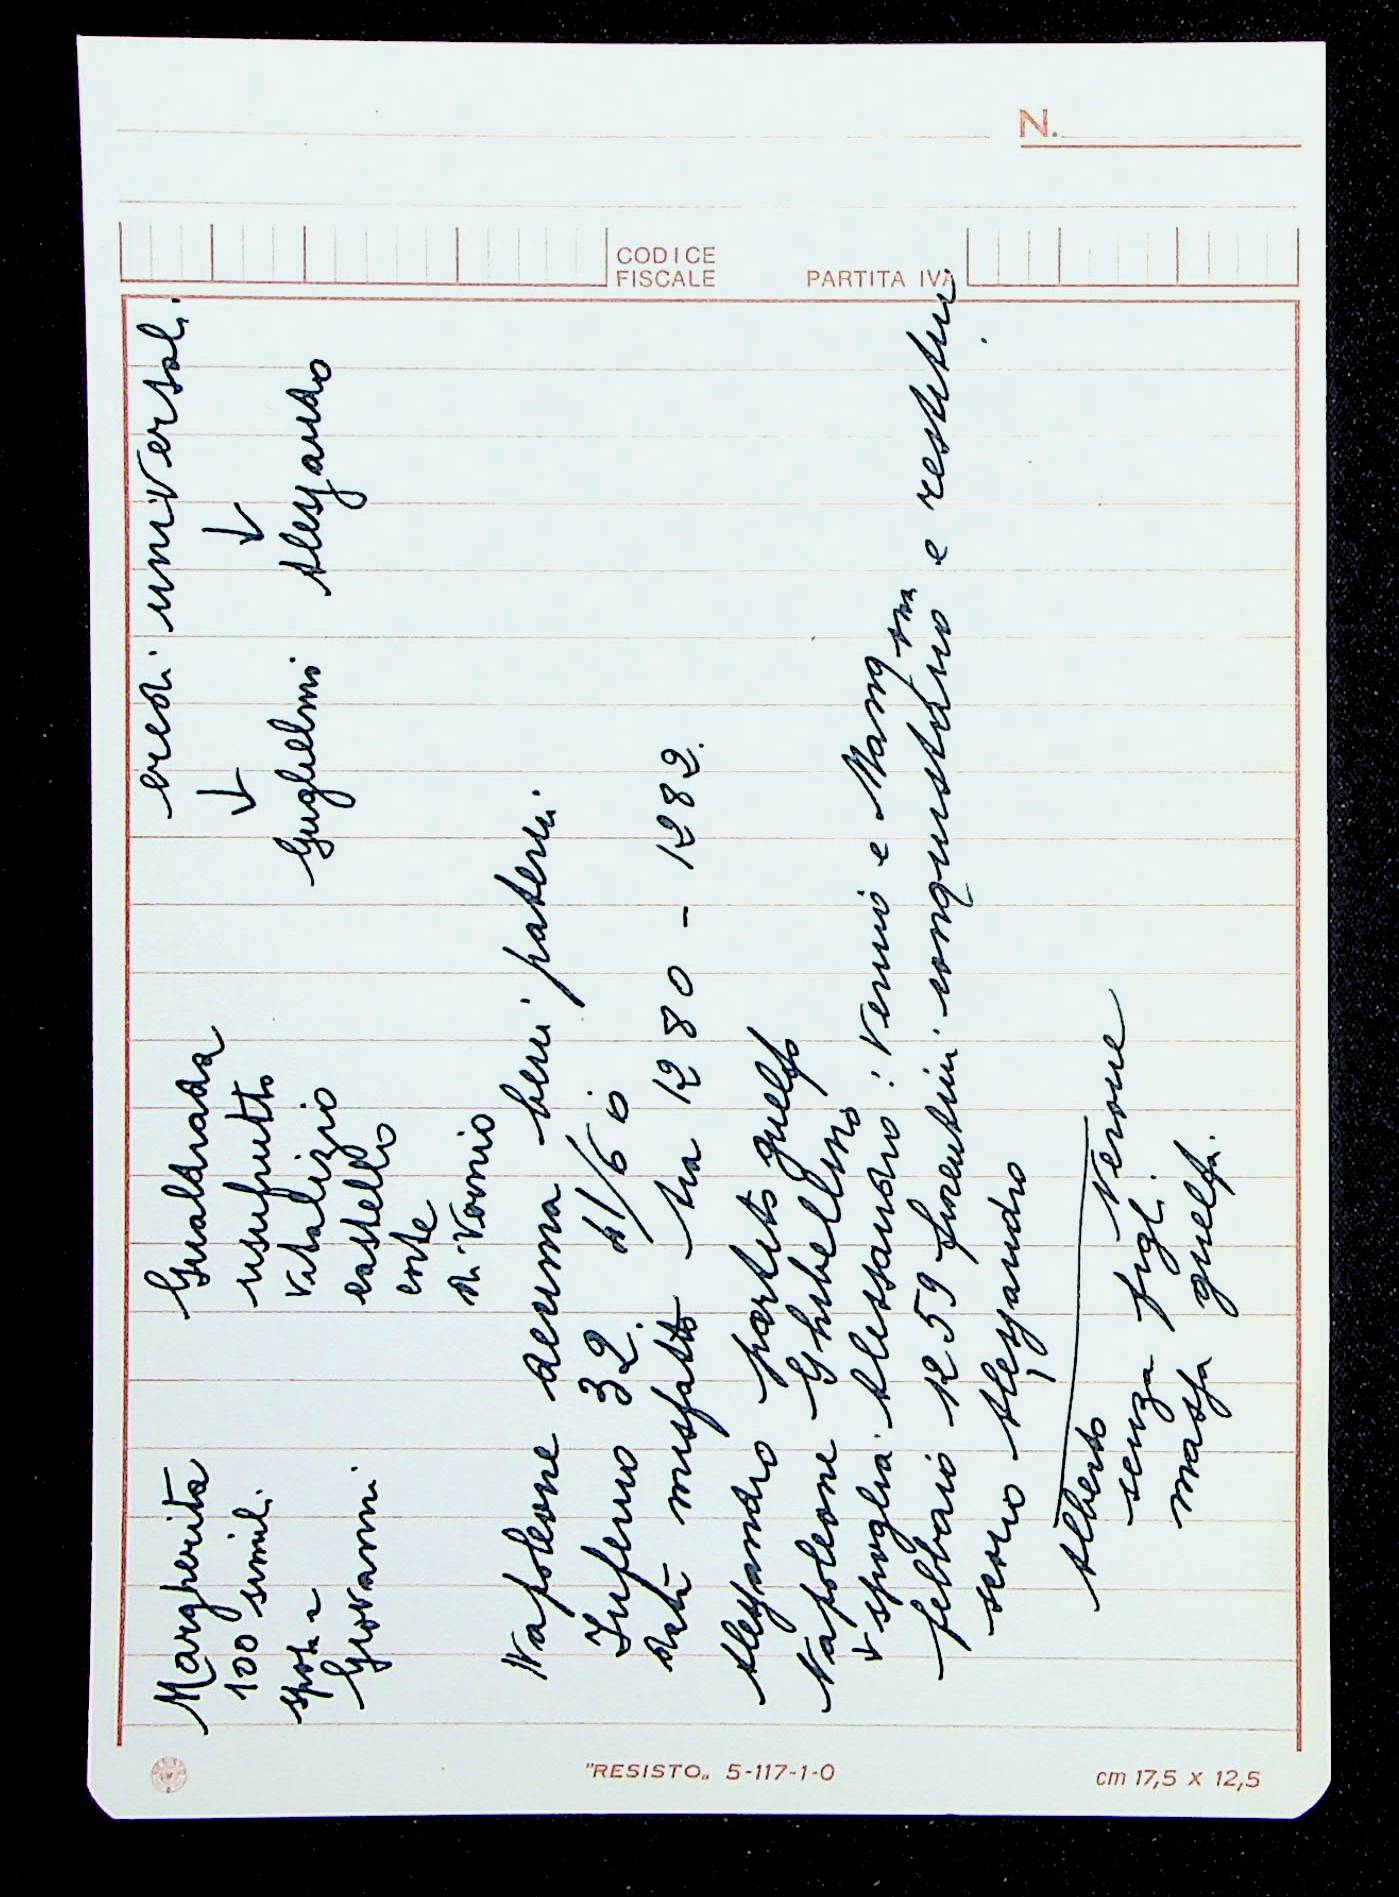 N.
CODICE FISCALE
PARTITA IVA
Margherita
100 simili
sposa a
Giovanni
Gualdrada
usufrutto
vitalizio
castello
corte
di Vernio
eredi universali
↓ ↓
Guglielmi Alessandro
Napoleone decima beni paterni
Inferno 32. 41/60
Dati misfatto tra 1280 - 1282.
Alessandro partito guelfo
Napoleone Ghibellino
↓ spoglia Alessandro: Vernio e Mangona
febbraio 1259 fiorentini conquistano e restitui
scono Alessandro
Alberto Nerone
senza figli
massa guelfa.
"RESISTO„ 5-117-1-0
cm 17,5 x 12,5